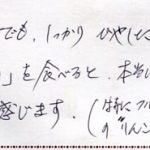 でも、しっかりひやした
」を食べると、本当に
感じます。(はれにフル
の"りんご